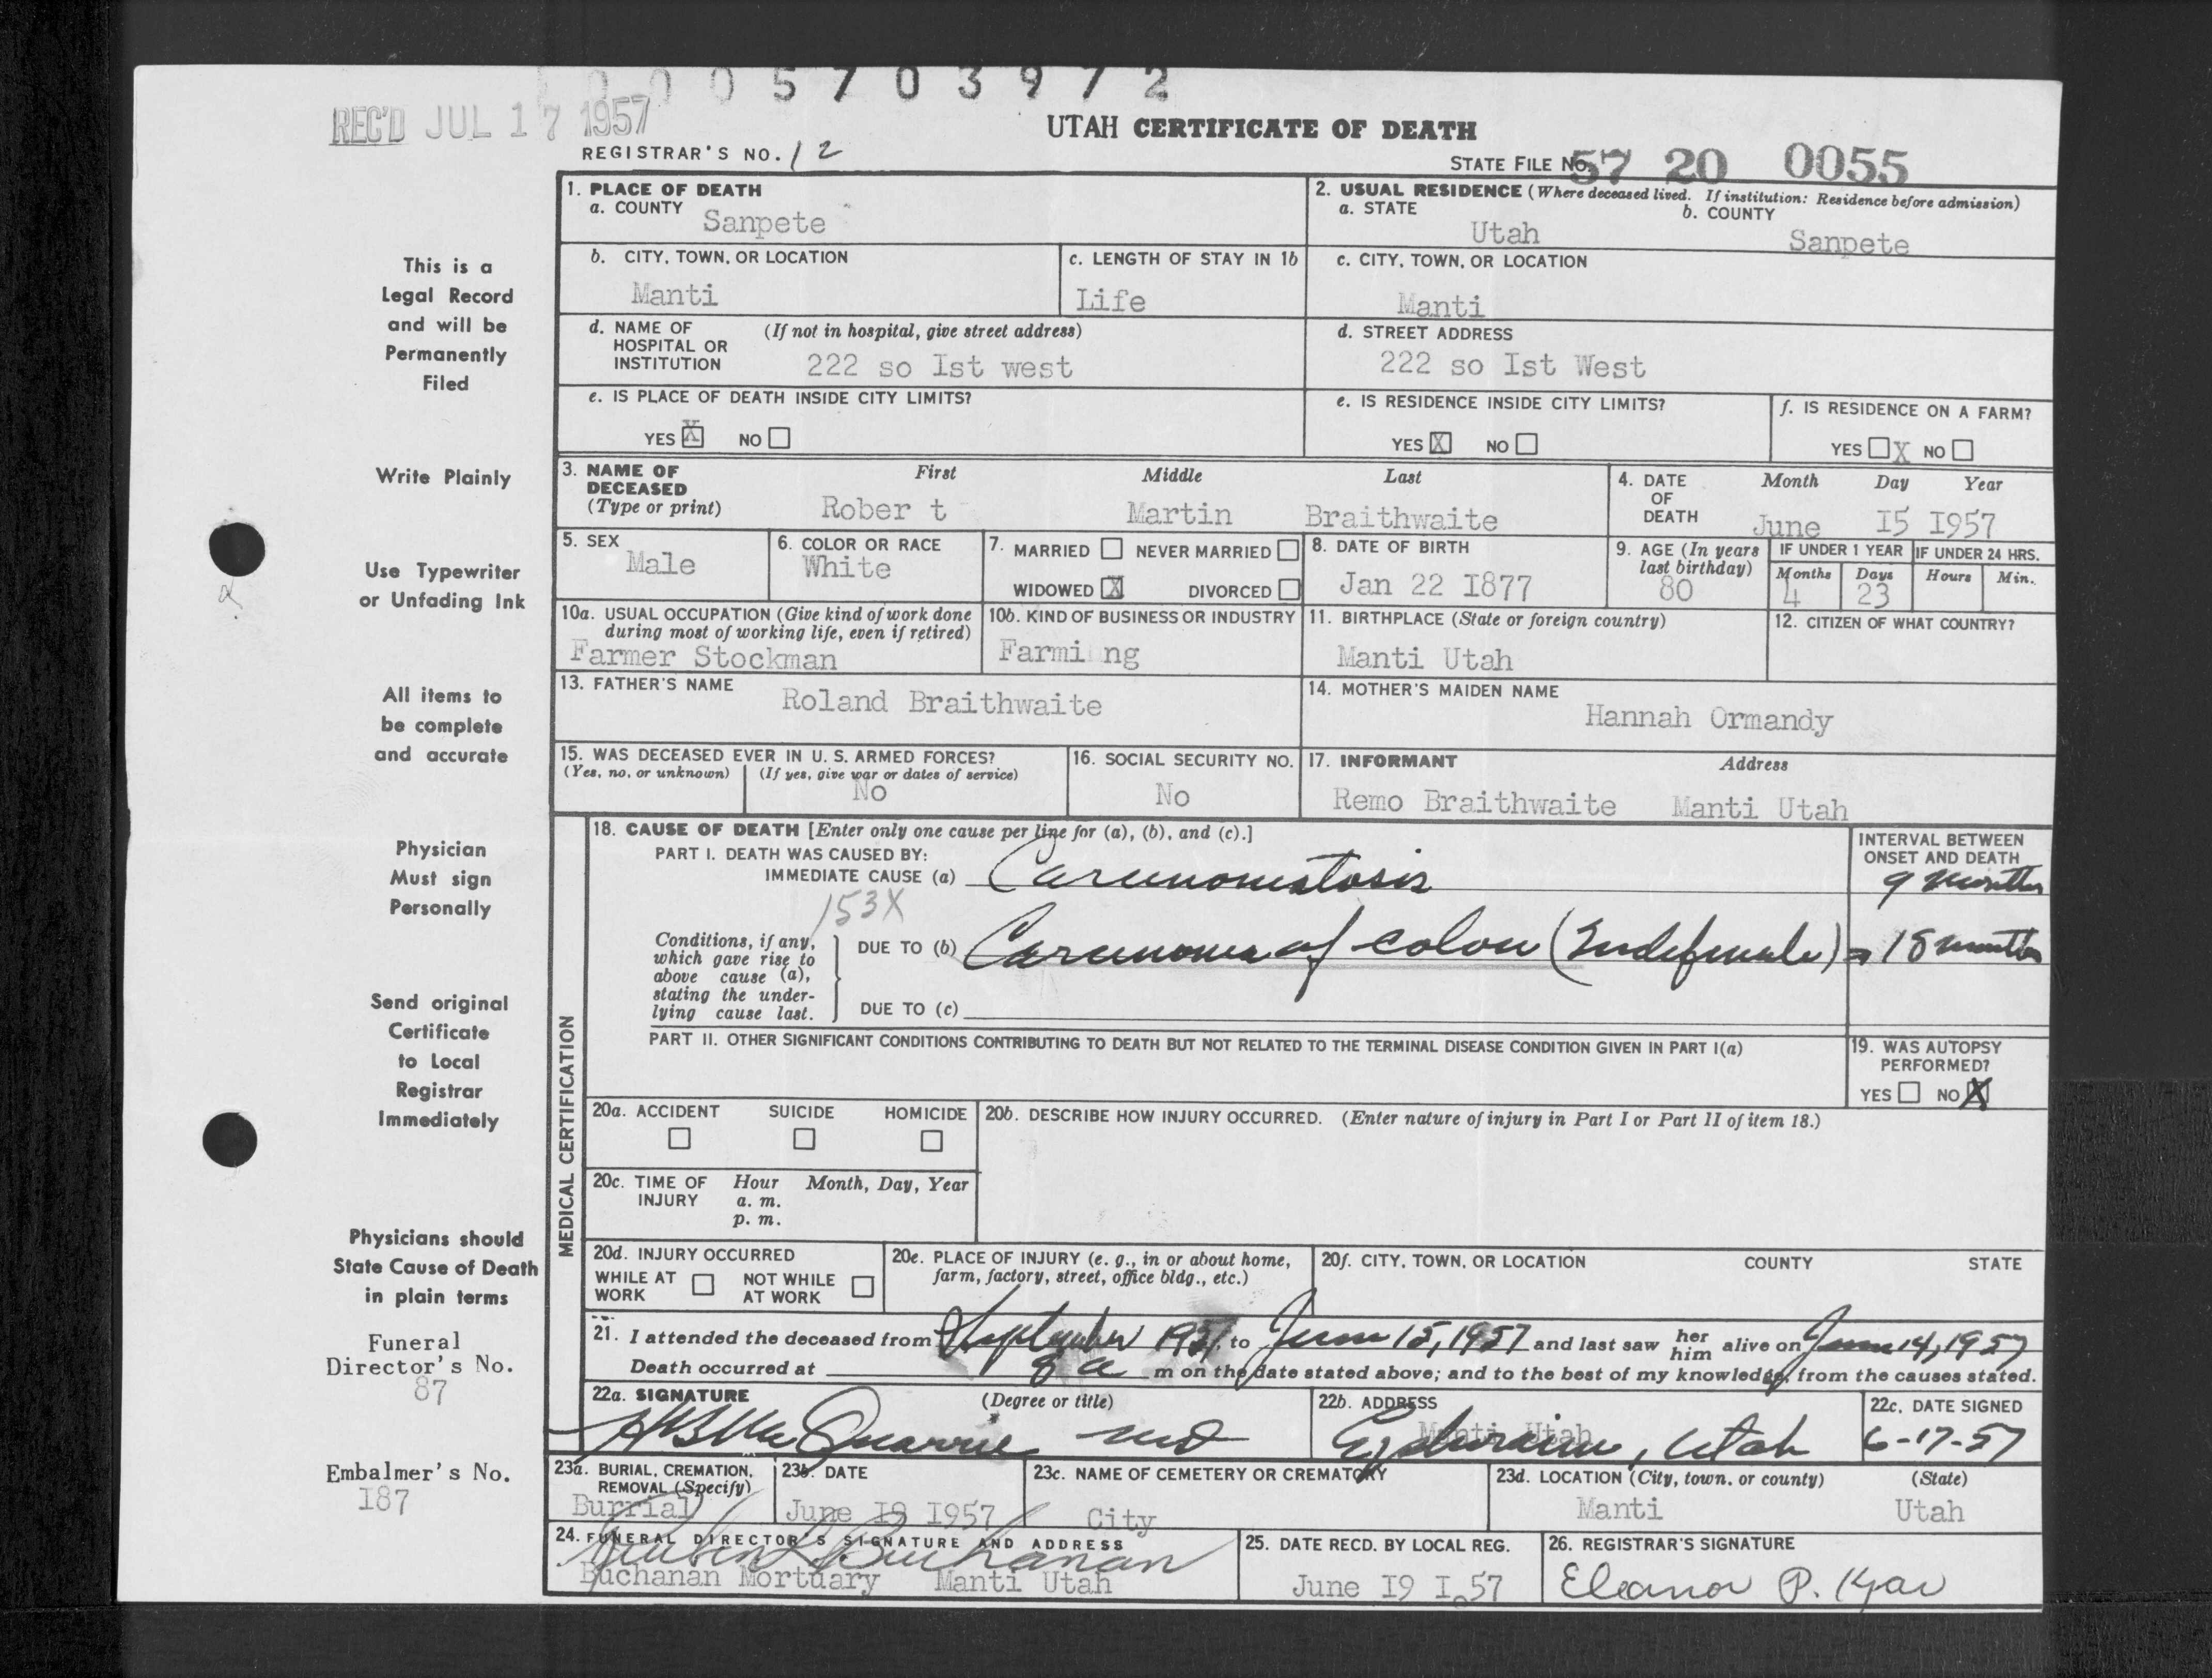 0 0 0 5 7 0 3 9 7 2
REC'D JUL 17 1957
UTAH CERTIFICATE OF DEATH
REGISTRAR'S NO. 12
STATE FILE NO. 57 20 0055
This is a
Legal Record
and will be
Permanently
Filed
Write Plainly
Use Typewriter
or Unfading Ink
All items to
be complete
and accurate
Physician
Must sign
Personally
Send original
Certificate
to Local
Registrar
Immediately
Physicians should
State Cause of Death
in plain terms
Funeral
Director's No.
87
Embalmer's No.
I87
1. PLACE OF DEATH
a. COUNTY Sanpete
2. USUAL RESIDENCE (Where deceased lived. If institution: Residence before admission)
a. STATE Utah b. COUNTY Sanpete
b. CITY, TOWN, OR LOCATION Manti
c. LENGTH OF STAY IN 1b Life
c. CITY, TOWN, OR LOCATION Manti
d. NAME OF HOSPITAL OR INSTITUTION (If not in hospital, give street address)
222 so Ist west
d. STREET ADDRESS
222 so Ist West
e. IS PLACE OF DEATH INSIDE CITY LIMITS?
YES X NO
e. IS RESIDENCE INSIDE CITY LIMITS?
YES X NO
f. IS RESIDENCE ON A FARM?
YES X NO
3. NAME OF DECEASED (Type or print) First Middle Last
Rober t Martin Braithwaite
4. DATE OF DEATH Month Day Year
June I5 I957
5. SEX Male
6. COLOR OR RACE White
7. MARRIED NEVER MARRIED
WIDOWED X DIVORCED
8. DATE OF BIRTH
Jan 22 I877
9. AGE (In years last birthday) 80
IF UNDER 1 YEAR IF UNDER 24 HRS.
Months Days Hours Min.
4 23
10a. USUAL OCCUPATION (Give kind of work done during most of working life, even if retired)
Farmer Stockman
10b. KIND OF BUSINESS OR INDUSTRY
Farmi ng
11. BIRTHPLACE (State or foreign country)
Manti Utah
12. CITIZEN OF WHAT COUNTRY?
13. FATHER'S NAME Roland Braithwaite
14. MOTHER'S MAIDEN NAME
Hannah Ormandy
15. WAS DECEASED EVER IN U. S. ARMED FORCES?
(Yes, no, or unknown) (If yes, give war or dates of service)
No
16. SOCIAL SECURITY NO.
No
17. INFORMANT Address
Remo Braithwaite Manti Utah
MEDICAL CERTIFICATION
18. CAUSE OF DEATH [Enter only one cause per line for (a), (b), and (c).]
PART I. DEATH WAS CAUSED BY:
IMMEDIATE CAUSE (a) Carcinomatosis
INTERVAL BETWEEN ONSET AND DEATH
9 months
153X
Conditions, if any, which gave rise to above cause (a), stating the underlying cause last.
DUE TO (b) Carcinoma of colon (Indefinite) 18 months
DUE TO (c)
PART II. OTHER SIGNIFICANT CONDITIONS CONTRIBUTING TO DEATH BUT NOT RELATED TO THE TERMINAL DISEASE CONDITION GIVEN IN PART I(a)
19. WAS AUTOPSY PERFORMED?
YES NO X
20a. ACCIDENT SUICIDE HOMICIDE
20b. DESCRIBE HOW INJURY OCCURRED. (Enter nature of injury in Part I or Part II of item 18.)
20c. TIME OF INJURY Hour Month, Day, Year
a. m.
p. m.
20d. INJURY OCCURRED
WHILE AT WORK NOT WHILE AT WORK
20e. PLACE OF INJURY (e. g., in or about home, farm, factory, street, office bldg., etc.)
20f. CITY, TOWN, OR LOCATION COUNTY STATE
21. I attended the deceased from September to June 15, 1957 and last saw her him alive on June 14, 1957
Death occurred at 8 a m on the date stated above; and to the best of my knowledge, from the causes stated.
22a. SIGNATURE (Degree or title)
McQuarrie MD
22b. ADDRESS
Manti Utah
Ephraim, Utah
22c. DATE SIGNED
6-17-57
23a. BURIAL, CREMATION, REMOVAL (Specify)
Burrial
23b. DATE
June I9 I957
23c. NAME OF CEMETERY OR CREMATORY
City
23d. LOCATION (City, town, or county) (State)
Manti Utah
24. FUNERAL DIRECTOR'S SIGNATURE AND ADDRESS
Buchanan
Buchanan Mortuary Manti Utah
25. DATE RECD. BY LOCAL REG.
June I9 I957
26. REGISTRAR'S SIGNATURE
Eleanor P. Kjar